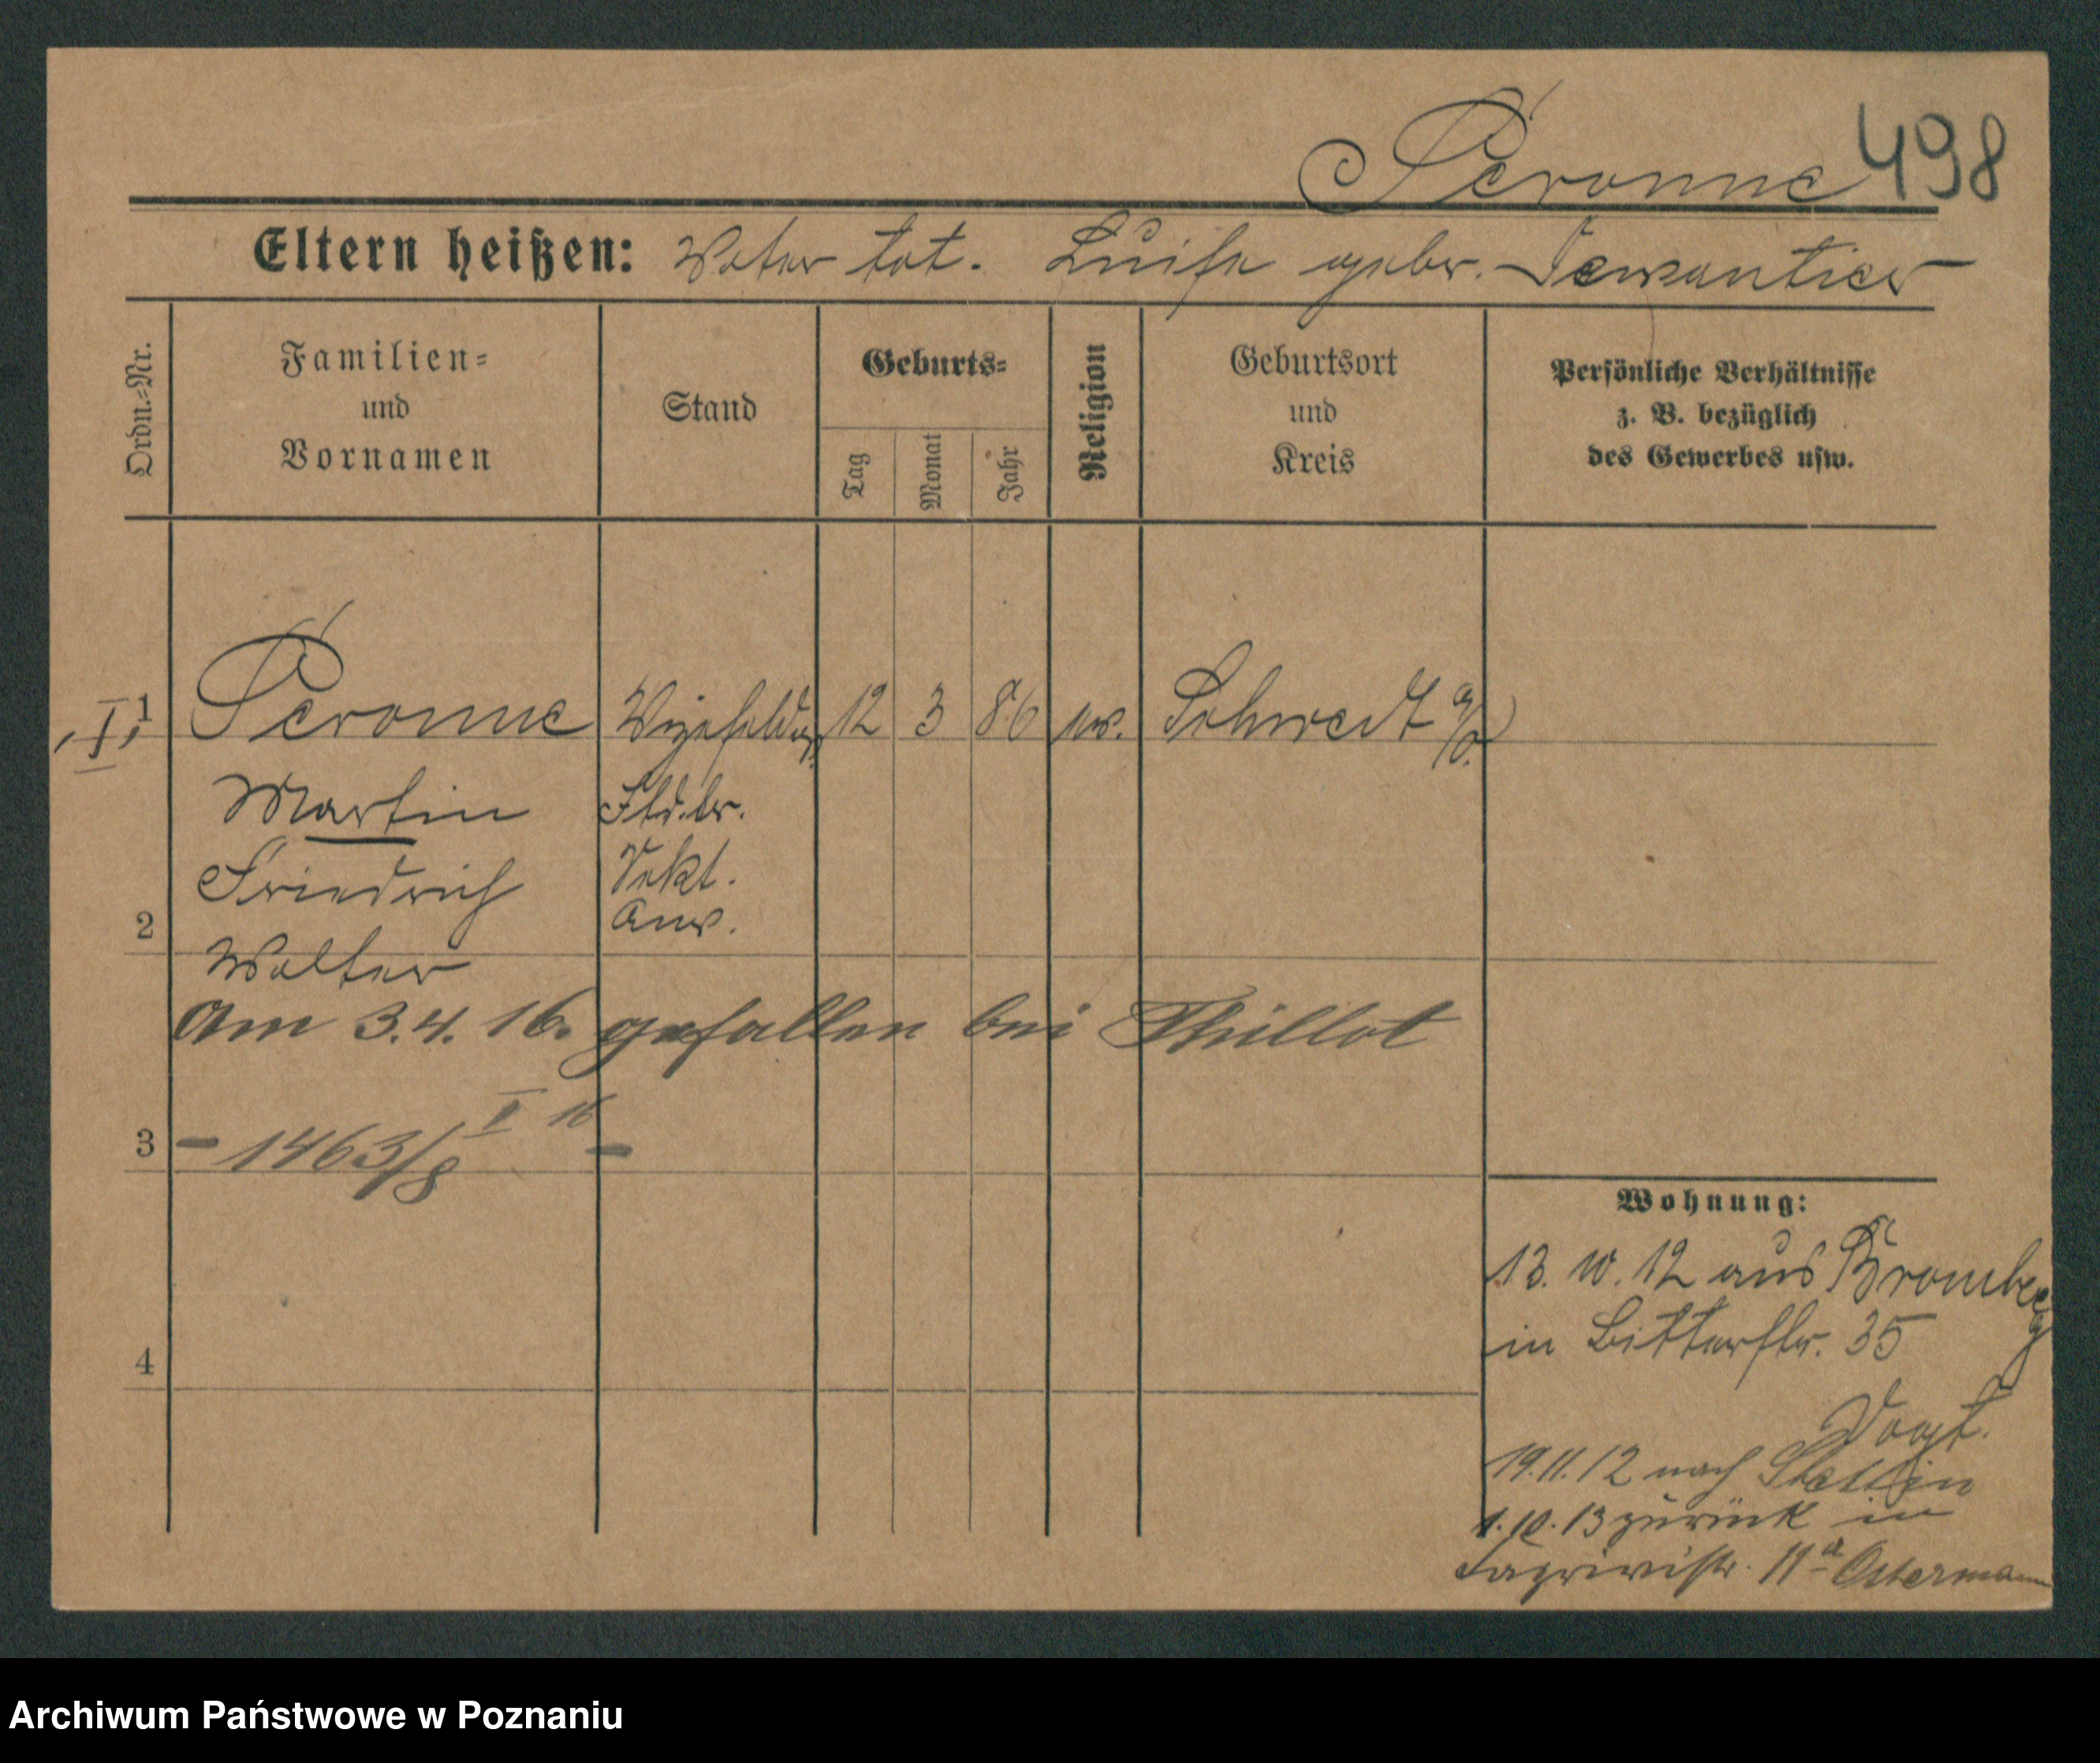 Péronne 498
Eltern heißen: Vater tot. Luise gebr.
Ordn.=Nr.
Familien=
und
Vornamen
Stand
Geburts=
Tag
Monat
Jahr
Religion
Geburtsort
und
Kreis
Persönliche Verhältnisse
z. B. bezüglich
des Gewerbes usw.
I, 1 Péronne Vizefeldw. 12 3 86 ev. Schwedt a/O.
Martin
Friedrich
Anw.
2
Walter
Am 3.4.16. gefallen bei Thillot
3 - 1463/8 II 16 -
4
Wohnung:
13. 10. 12 aus Bromberg
in Bitterstr. 35
Vogt.
19.11.12 nach Stettin
1.10.13 zurück in
11a Ostermann
Archiwum Państwowe w Poznaniu